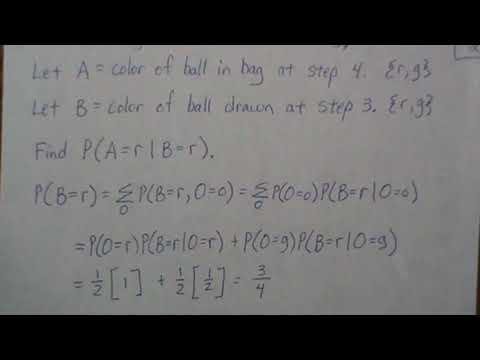 Let A = color of ball in bag at step 4. {r,g}
Let B = color of ball drawn at step 3. {r,g}
Find P(A=r|B=r).
P(B=r) = ∑_O P(B=r, O=o) = ∑_O P(O=o)P(B=r|O=o)
= P(O=r)P(B=r|O=r) + P(O=g)P(B=r|O=g)
= 1/2 [1] + 1/2 [1/2] = 3/4